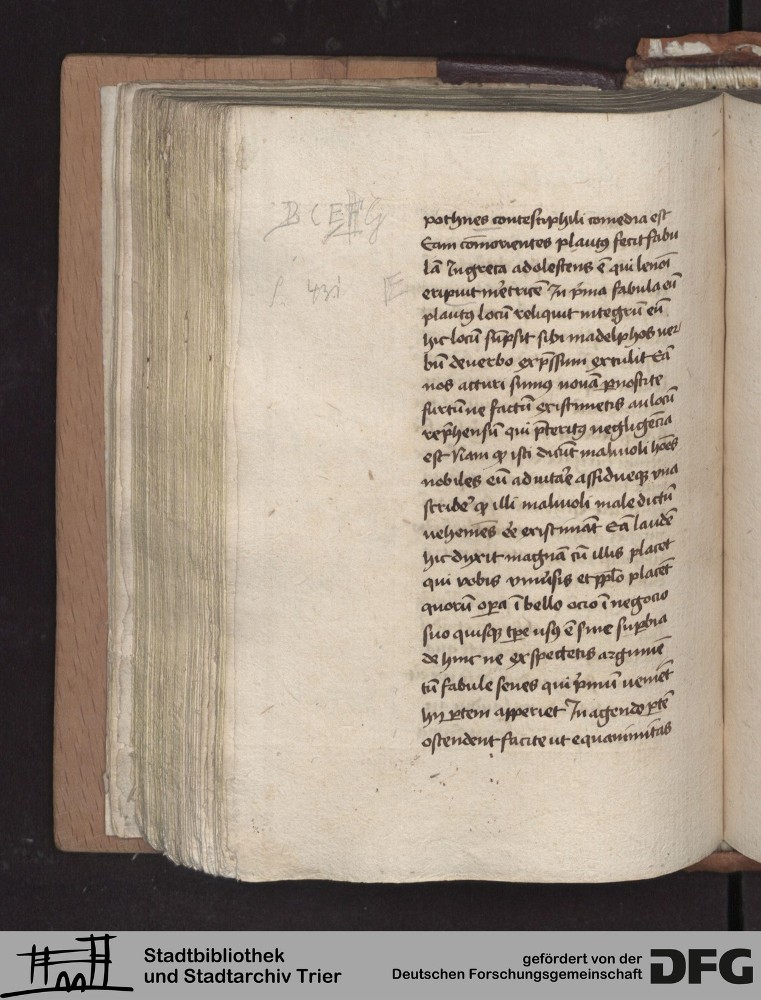 B C E F G
431 E
pothnes contestiphili comedia est
Eam comorientes plautꝰ fecit fabu
lā In greca adolestens ē qui lenoī
eripuit mēͬtricē In pͥma fabula eū
plautꝰ locū reliquit integrū eū
hic locū sūpsit sibi in adelphos uer/
bū de verbo exp̄ssum extulit Eā
nos acturi sumꝰ nouā pnoscite
furtū ne factū existimetis an locū
rep̄hensū qui p̄teritꝰ negligēcia
est Nam ꝙ isti dicūt maliuoli hoēs
nobiles eū adiutaͬe assidueqꝫ vna
scribeͬ ꝙ illi maliuoli male dictū
uehemēs eē existimāt Eā laudē
hic dixit magnā cū illis placet
qui vobis vniuͬsis et pplo placēt
quorū opͣa ī bello ocio ī negocio
suo quisqꝫ tpe usꝰ ē sine supbia
de hinc ne expectetis argumē
tū fabule senes qui pͥmū uenīēt
hij ꝑtem apperiēt In agendo ꝑtē
ostendent facite ut equanimitas
Stadtbibliothek
und Stadtarchiv Trier
gefördert von der
Deutschen Forschungsgemeinschaft
DFG